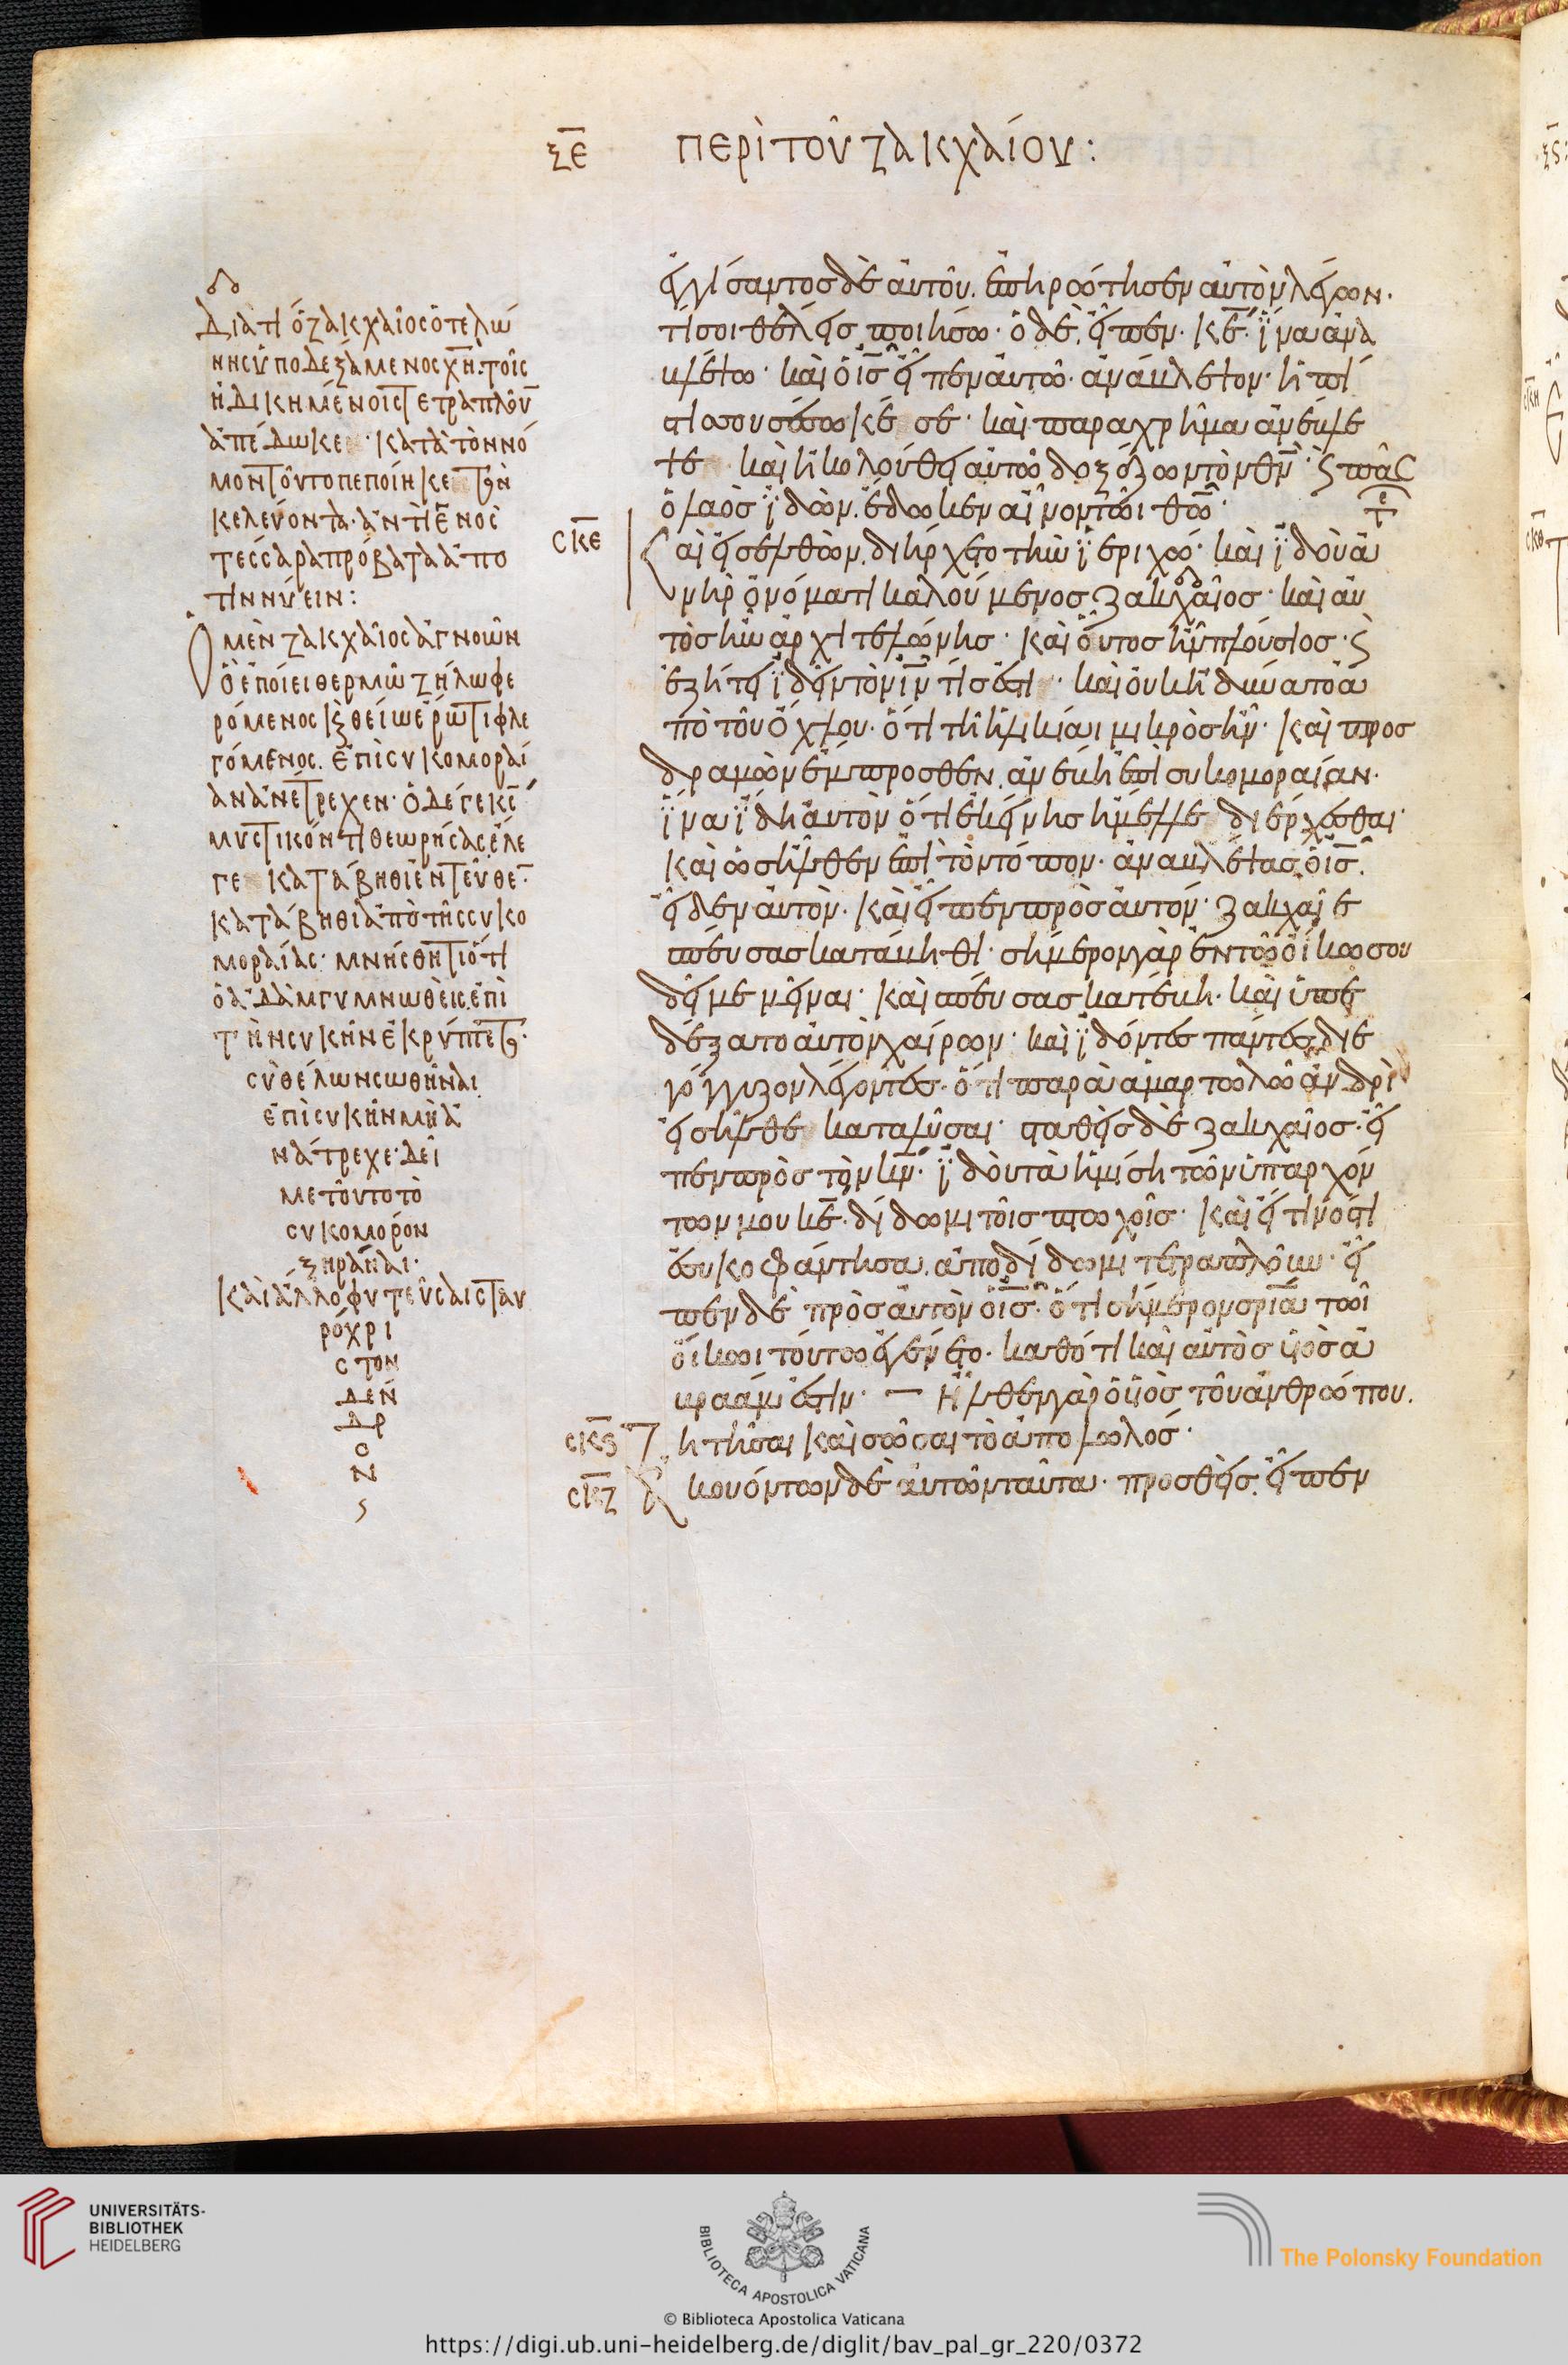 ξε περὶ τοῦ ζακχαίου:
Διατί ὁ ζακχαῖος ὁ τελώ
νης ὑποδεξάμενος χν· τοῖς
ἠδικημένοις τετραπλοῦν
ἀπέδωκε · κατὰ τὸν νό
μον τοῦτο πεποίηκε τὸν
κελεύοντα· ἀντὶ ἑνὸς
τέσσαρα πρόβατα ἀπο
τιννύειν:
Ὁ μὲν ζακχαῖος ἀγνοῶν
ὃ ἐποίει θερμῶ ζήλω φε
ρόμενος κ θείω ἔρωτι φλε
γόμενος. ἐπὶ συκομοραί
αν ἀνέτρεχεν· ὁ δέ γε κς
μυστικόν τι θεωρήσας ἔλε
γε κατάβηθι ἐντεῦθεν·
κατάβηθι ἀπὸ τῆς συκο
μοραίας· μνήσθητι ὅτι
ὁ ἀδὰμ γυμνωθεὶς ἐπὶ
τὴν συκῆν ἐκρύπτετο·
σὺ θέλων σωθῆναι
ἐπὶ συκῆν μὴ ἀ
νάτρεχε· δεῖ
με τοῦτο τὸ
συκομορόν
ξηρᾶναι·
καὶ ἄλλο φυτεῦσαι σταυ
ρόχρι
στον
δέν
δρ
ο
ν
ἐγγίσαντος δὲ αὐτοῦ. ἐπηρώτησεν αὐτὸν λέγων·
τί σοι θέλεις ποιήσω· ὁ δὲ. εἶπεν· κε· ἵνα ἀνα
βλέψω· καὶ ὁ ις εἶπεν αὐτῶ· ἀνάβλεψον· ἡ πί
στις σου σέσωκέ σε· καὶ παραχρῆμα ἀνέβλε
ψε καὶ ἠκολούθει αὐτῶ δοξάζων τὸν θν· ϛ πᾶς
ὁ λαὸς ἰδὼν. ἔδωκεν αἶνον τῶι θω·
σκε Καὶ εἰσελθὼν. διήρχετο τὴν ἱεριχώ· καὶ ἰδοὺ ἀ
νὴρ ὀνόματι καλούμενος ζακχαῖος· καὶ αὐ
τὸς ἦν ἀρχιτελώνης· καὶ οὗτος ἦν πλούσιος· ϛ
ἐζήτει ἰδεῖν τὸν ιν τίς ἐστι · καὶ οὐκ ἠδύνατο ἀ
πὸ τοῦ ὄχλου· ὅτι τῆ ἡλικίαι μικρὸς ἦν· καὶ προσ
δραμὼν ἔμπροσθεν. ἀνέβη ἐπὶ συκομοραίαν·
ἵνα ἴδη αὐτὸν ὅτι ἐκείνης ἤμελλε διέρχεσθαι·
καὶ ὡς ἦλθεν ἐπὶ τὸν τόπον· ἀναβλέψας ὁ ις.
εἶδεν αὐτὸν· καὶ εἶπεν πρὸς αὐτόν· ζακχαῖε
σπεύσας κατάβηθι· σήμερον γὰρ ἐν τῶ οἴκω σου
δεῖ με μεῖναι· καὶ σπεύσας κατέβη· καὶ ὑπε
δέξατο αὐτὸν χαίρων· καὶ ἰδόντες πάντες διε
γόγγυζον λέγοντες· ὅτι παρὰ ἁμαρτωλῶ ἀνδρὶ
εἰσῆλθε καταλῦσαι· σταθεὶς δὲ ζακχαῖος· εἶ
πεν πρὸς τὸν κν· ἰδοὺ τὰ ἡμίση τῶν ὑπαρχόν
των μου κε· δίδωμι τοῖς πτωχοῖς· καὶ εἴ τινός τι
ἐσυκοφάντησα. ἀποδίδωμι τετραπλοῦν· εἶ
πεν δὲ πρὸς αὐτὸν ὁ ις· ὅτι σήμερον σρία τῶι
οἴκωι τούτω ἐγένετο· καθότι καὶ αὐτὸς υἱὸς ἀ
βραάμ ἐστιν· — Ἦλθεν γὰρ ὁ υἱὸς τοῦ ἀνθρώπου.
σκϛ ζητῆσαι καὶ σῶσαι τὸ ἀπολωλός·
σκζ Ἀκουόντων δὲ αὐτῶν ταῦτα· προσθεὶς. εἶπεν
UNIVERSITÄTS-
BIBLIOTHEK
HEIDELBERG
BIBLIOTECA APOSTOLICA VATICANA
The Polonsky Foundation
© Biblioteca Apostolica Vaticana
https://digi.ub.uni-heidelberg.de/diglit/bav_pal_gr_220/0372